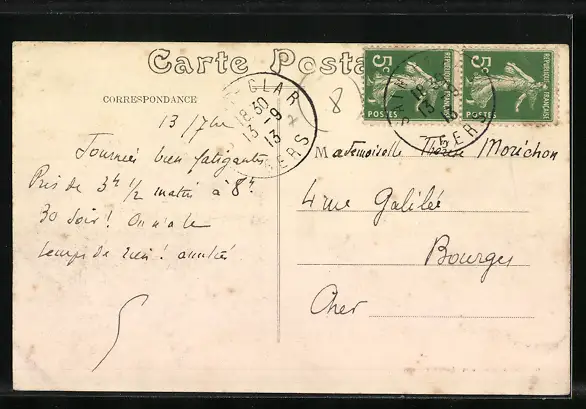 Carte Posta
CORRESPONDANCE
13/7bre
Journée bien fatigante
Pris de 3h 1/2 matin à 8h
30 soir ! On n'a le
temps de rien ! amitiés
GLAR
18 30
13 - 9
13
GERS
8
5c
POSTES
REPUBLIQUE FRANÇAISE
5c
POSTES
REPUBLIQUE FRANÇAISE
18 30
13
GERS
Mademoiselle Thérèse Moréchon
4 rue Galilée
Bourges
Cher